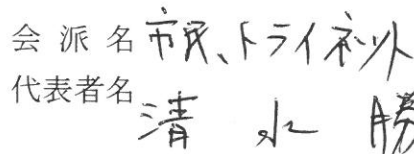 会派名 市民、トライネット
代表者名 清水 勝